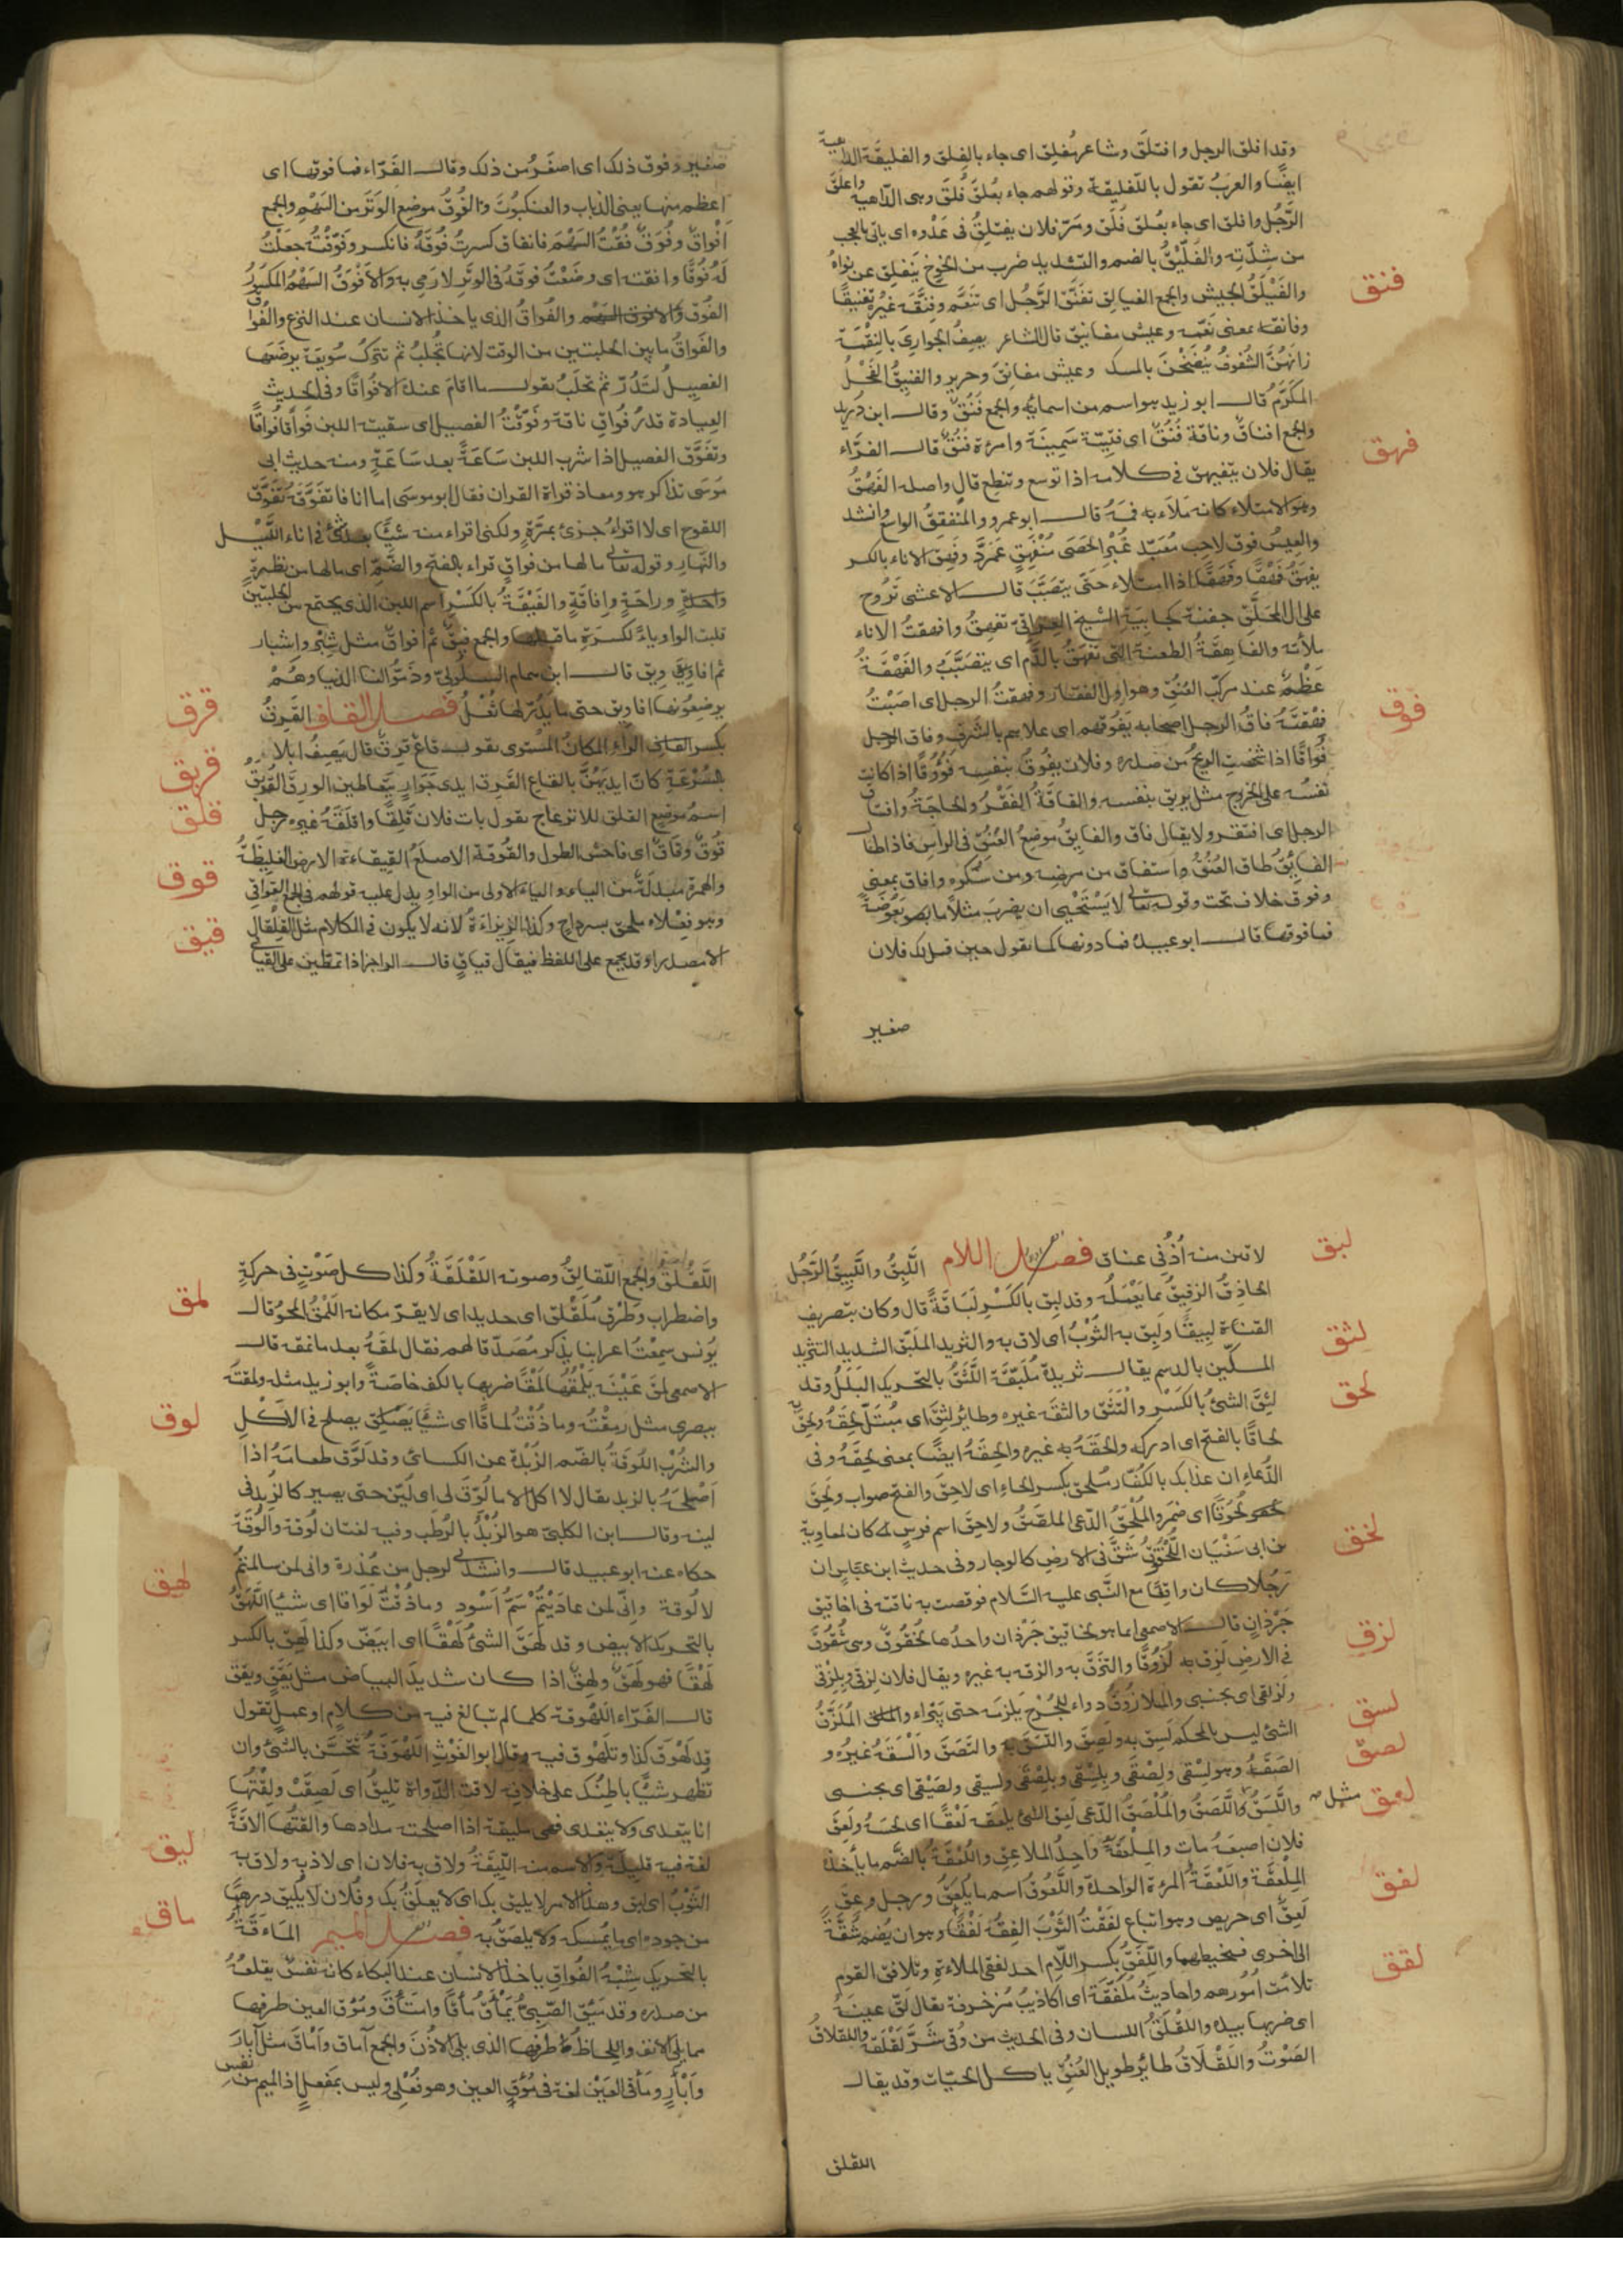 وقد افلق الرجل وافتلق وشاعر مُفلِق اى جاء بالفلق والفليقة الداهية
ايضًا والعربُ تقول ياللفليقة وقولهم جاء بعُلَقَ فُلَقَ وهى الداهية واعلق
الرَّجُل وافلق اى جاء بعُلَقَ فُلَقَ ومَرّ فلان يفتلِقُ فى عَدْوه اى ياتى بالعجب
من شِدّته والفُلَّيْقُ بالضم والتشديد ضرب من الخوخ يتفلق عن نواهُ
فنق
والفَيْلَقُ الجيش والجمع الفيالق تفنَّقَ الرَّجُل اى تنعَّم وفنَّقَه غيرُه تفنيقًا
وفانقه بمعنى نَعّمه وعيش مفانق قال الشاعر يصِفُ الجوارىَ بالنِعْمَة
زانهُنَّ الشُفوفُ ينْضَحْنَ بالمسك وعيش مفانق وحرير والفنيقُ الفَحْلُ
المكرَّمُ قال ابو زيد هو اسم من اسمائه والجمع فُنُقٌ وقال ابن دريد
والجمع افناق وناقة فُنُقٌ اى فتيّة سَمِينَة وامرءة فُنُقٌ قال الفرّاء
فهق
يقال فلان يتفيهق فى كلامه اذا توسع وتنطع قال واصله الفَهْقُ
وهو الامتلاء كانه مَلأ به فمَهُ قال ابو عمرو والمنفهِقُ الواسع وانشد
والعِيسُ فوق لاحبٍ مُعَبّد غُبْر الحَصَى مُنْفَهِقٍ عَمَرَّد وفهِق الاناء بالكسر
يفهَقُ فَهْقًا وفَهَقًا اذا امتلاء حتى يتصَبَّبَ قال الاعشى تَرُوحُ
على ال المحَلَّقِ جفنة كجابيَة الشيخ العراقى تفهَقُ وافهقتُ الاناء
ملأته والفاهِقَةُ الطعنة التى تفهَقُ بالدَّم اى يتصَبَّبُ والفَهْقَةُ
عَظْمٌ عند مركَّب العُنُقِ وهو اول الفقار وفهقتُ الرجل اى اصَبْتُ
فوق
فهْقَتَهُ فاقَ الرجل اصحابه يَفُوقهم اى علاهم بالشرَفِ وفاق الرجل
فُواقًا اذا شخصتِ الريحُ من صدره وفلان يفُوقُ بنفسِه فُوُوقًا اذا كانت
نفسُه على الخروج مثل يريق بنفسه والفاقَةُ الفَقْرُ والحاجَةُ وافتاق
الرجل اى افتقر ولا يقال فاق والفايقُ موضعُ العُنُقِ فى الرأسِ فاذا طال
الفايقُ طال العُنُقُ واستفاق من مرضِه ومن سُكره وافاق بمعنى
وفوق خلاف تحت وقوله تعالى لا يَسْتَحْيى ان يضرِبَ مثلاً ما بعُوضَةً
فما فوقها قال ابو عبيدة فما دونها كما تقول حين قيل لك فلان
صغير
صغير وفوق ذلك اى اصغَرُ من ذلك وقال الفَرّاء فما فوقها اى
اعظم منها يعنى الذباب والعنكبوتَ والفُوقُ موضِع الوَتَر من السَهْمِ والجمع
افْواق وفُوَق فُقْتُ السَهْمَ فانفاق كسرتُ فُوقَهُ فانكسر وفَوّقْتُهُ جعَلْتُ
لَهُ فُوقًا وافقته اى وضَعْتُ فوقَهُ فى الوتر لارمى به والافْوَقُ السَهْمُ المكسورُ
الفُوقِ والفُواقُ الذى ياخذ الانسان عند النزع والفُواقُ
والفَواقُ ما بين الحلبتين من الوقت لانها تُحْلَبُ ثم تترك سُويعَة يرضَعها
الفصِيلُ لتَدُرّ ثم تحلَبُ يقول ما اقام عنده الا فُواقًا وفى الحديث
العِيادة قدرُ فُواق ناقة وفَوّقْتُ الفصيل اى سقيته اللبن فُواقًا فُواقًا
وتفوَّق الفصيل اذا شرب اللبن سَاعَةً بعد سَاعَةٍ ومنه حديث ابى
مُوسى تذاكر هو ومعاذ قراة القران فقال ابو موسى اما انا فاتفَوَّقُه تفَوُّقَ
اللقوح اى لا اقراءُ جزئ بمَرَّةٍ ولكنى اقراء منه شيًّا بعد شئ فى اناء اللَّيْل
والنّهار وقوله تعالى ما لها من فواقٍ قراء بالفتح والضَمّ اى ما لها من نظرةٍ
وراحَةٍ وافاقَةٍ والفِيْقَةُ بالكَسْر اسم اللبن الذى يجتمع بين الحلبتَيْن
قلبت الواو ياءً لكسرَةِ ما قبلها والجمع فِيَق ثم افواق مثل شِبْر واشبار
ثم افاويق قال ابن همام السلولىّ وذمّوا لنا الدنيا وهُمْ
قرق
يرضِعُونها افاويق حتى ما يدُرّ لها ثُعْلُ فصل القاف القَرِقُ
بكسر الراء المكانُ المُستوى يقول قاع قَرِقٌ قال يَصِفُ ابلا
قريق
بالسُرْعَةِ كانّ ايديهُنَّ بالقاع القَرِق ايدى جَوَارٍ يتعاطين الورِق
قلق
اسم موضِع القلق الانزعاج يقول بات فلان قَلِقًا واقلَقَهُ غيره رجل
قوق
قُوقٌ وقَاقٌ اى فاحش الطول والقُوقَة الاصلَعُ القِيقاءة الارض الغليظَةُ
قيق
والهمزة مبدلَةٌ من الياء والياء الاولى من الواو يدل عليه قولهم فى الجمع القواقى
وهو فِعْلاء ملحق بسرداح وكذا الزيزاءة لانه لا يكون فى الكلام مثل القِلْقَال
الا مصدرا وقد يجمع على اللفظ فيقال قياقٍ قال الراجز اذا تمطّين على القياقى
لبق
لاقين منه أُذُنَى عناق فصل اللام اللَبِقُ واللَّبِيقُ الرَّجُلُ
الحاذِقُ الرفيقُ بما يَعْمَلُه وقد لبِق بالكَسْرِ لَبَاقَةً قال وكان بتصريفِ
القناة لبِيقًا ولَبِقَ به الثَّوْبُ اى لاق به والثريد المُلَبَّقُ الشديد التثريد
لثق
الملَّين بالدسم يقال ثريدة مُلَبَّقَة اللَّثَقُ بالتحريك البَلَلُ وقد
لحق
لثِقَ الشئُ بالكسْرِ والتَثَقَ والثقَه غيره وطائر لثِقٌ اى مُبْتَلّ لحِقَهُ ولحِقَ به
لحاقًا بالفتح اى ادركه والحَقَهُ به غيره والحَقَهُ ايضًا بمعنى لحِقَهُ وفى
الدُعاءِ ان عذابك بالكُفّار ملحِق بكسر الحاءِ اى لاحِق والفتح صواب ولحِقَ
لُحُوقًا اى ضَمَر والمُلْحَقُ الدّعى الملصَقُ ولاحِق اسم فرس كان لمعاوِية
لخق
بن ابى سَفْيان اللُّخْقُوقُ شَقّ فى الارضِ كالوجار وفى حديث ابن عبّاس ان
رَجُلا كان واقفًا مع النّبى عليه السَّلام فوقصت به ناقته فى اخاقيق
جَرْذانٍ قال الاصمعى انما هو لخاقيق جَرْذان واحدُها لُخْقُوقٌ وهى شُقُوقٌ
لزق
فى الارضِ لَزِقَ به لُزُوقًا والتزَقَ به والزقه به غيره ويقال فلان لِزقى وبِلِزْقى
ولَزِيْقى اى بجنبى والملازُوقُ دواء للجُرْح يَلزَمه حتى يَبْراء المُلَزَّقُ
لسق
الشئ ليس بالمحكم لَسِقَ به ولَصِقَ والتَسَقَ به والتَصَقَ والْسَقَهُ غيرُه و
لصق
الصَقَهُ وهو لِسْقى ولِصْقى وبِلِسْقى وبِلِصْقى ولَسِيقى ولصَيْقى اى بجنبى
لعق
واللَّسَقُ كاللَّصَقُ والمُلْصَقُ الدّعى لَعِقَ الشئ يلعَقه لَعْقًا اى لحسَهُ ولَعِقَ
فلان اصبعَهُ مات والمِلْعَقَةُ واحِدُ الملاعِقِ واللُعْقَةُ بالضّم ما يأخذه
المِلْعَقَة واللَّعْقَةُ المرّة الواحدة واللَّعُوقُ اسم ما يُلْعَقُ ورجل وعِقٌ
لفق
لَعِقٌ اى حريص وهو اتباع لفَقْتُ الثوْبَ الفِقُهُ لَفْقًا وهو ان يُضمّ شُقَّةٌ
الى اخرى فتخيطهما واللِّفْقُ بكسر اللام احد لفقى الملاءةِ وتلافق القوم
لقق
تلاءَمَت أمُورهم واحاديثُ مُلَفَّقَة اى اكاذيبُ مُزخرفة يقال لَقّ عينَهُ
اى ضربها بيده واللقْلَقُ اللسان وفى الحديث من وُقى شَرَّ لَقْلَقِه واللقلاقُ
الصَوْتُ واللَّقْلَاقُ طائر طويل العُنُق ياكل الحيّات وقد يقال
اللقلق
اللَّقْلَقُ والجمع اللّقالِقُ وصوته اللَقْلَقَةُ وكذا كل صَوْتٍ فى حركةٍ
لمق
واضطراب وطَرْف مُلَقْلَق اى حديد اى لا يقرّ مكانه اللَمْقُ المحْوُ قال
يُونس سمِعْتُ اعرابيا يذكر مُصَدّقا لهم فقال لمَقَهُ بعد ما نمَّقه قال
الاصمعى لمَقَ عَيْنَه يَلْمُقُها لَمْقًا ضربها بالكفّ خاصَةً وابو زيد مثله ولمقتُه
لوق
ببصرى مثل رمقْتُه وما ذُقْتُ لَماقًا اى شيًّا يصلح فى الاَكْلِ
والشُرْبِ اللُوقَةُ بالضّم الزُبْدة عن الكسائى وقد لَوَّق طعامَهُ اذا
اصْلحَهُ بالزبد يقال لا اكل الا ما لُوّقَ لى اى ليّن حتى يصير كالزبد فى
لينه وقال ابن الكلبىّ هو الزُبْدُ بالرُطَب وفيه لغتان لُوقة وألُوقَة
لهق
حكاه عنه ابو عبيد قال وانشد لرجل من عُذرة وانى لمن سالمتُم
لاَلُوقة وانّى لمن عادَيْتُم سَمُّ اسْود وما ذُقْتُ لَواقا اى شيئا اللَهَقُ
بالتحريك الابيض وقد لَهَقَ الشئُ لَهْقًا اى ابيَضّ وكذا لَهِقَ بالكسر
لَهَقًا فهو لَهَقٌ ولهِقٌ اذا كان شديدَ البياض مثل يَقَقٍ ويقِقٍ
قال الفَرّاء اللَهْوقة كلما لم تبالغ فيه من كلام او عمل تقول
قد لهْوَقَ كذا وتلهْوَق فيه وقال ابو الغَوْثِ اللَهْوَقَةُ تحَسّن بالشئ وان
تظهر شيًّا باطِنُك على خلافه لاقت الدواة تليقُ اى لَصِقَتْ ولِقْتُها
ليق
انا يتعدى ولا يتعدى فهى مليقة اذا اصلحت مدادها والقتُها الاقةً
لغة فيه قليلَة والاسم منه اللِيقَةُ ولاق به فلان اى لاذ به ولاق به
الثَوْبُ اى لبق وهذا الامر لا يليق بك اى لا يعلَقُ بك وفلان لا يُليق درهمًا
ماق
من جوده اى ما يُمسكه ولا يلصَقُ به فصل الميم المَاَقَةُ
بالتحريك شِبْهُ الفُواقِ ياخذ الانسان عند البكاء كانه نفَسٌ يقلعُهُ
من صدره وقد مَئِقَ الصَبِىُّ يَمْأَقُ مَأقًا وامتأق ومُؤق العين طرفها
مما يلى الانف واللِحاظُ طرفها الذى يلى الاذُنَ والجمع آماق واَمْآق مثل آبار
وأَبْآر ومَأقى العَيْن لغة فى مُوْقِ العين وهو فَعْلِى وليس بمَفْعِلٍ اذ الميم من نفسِ